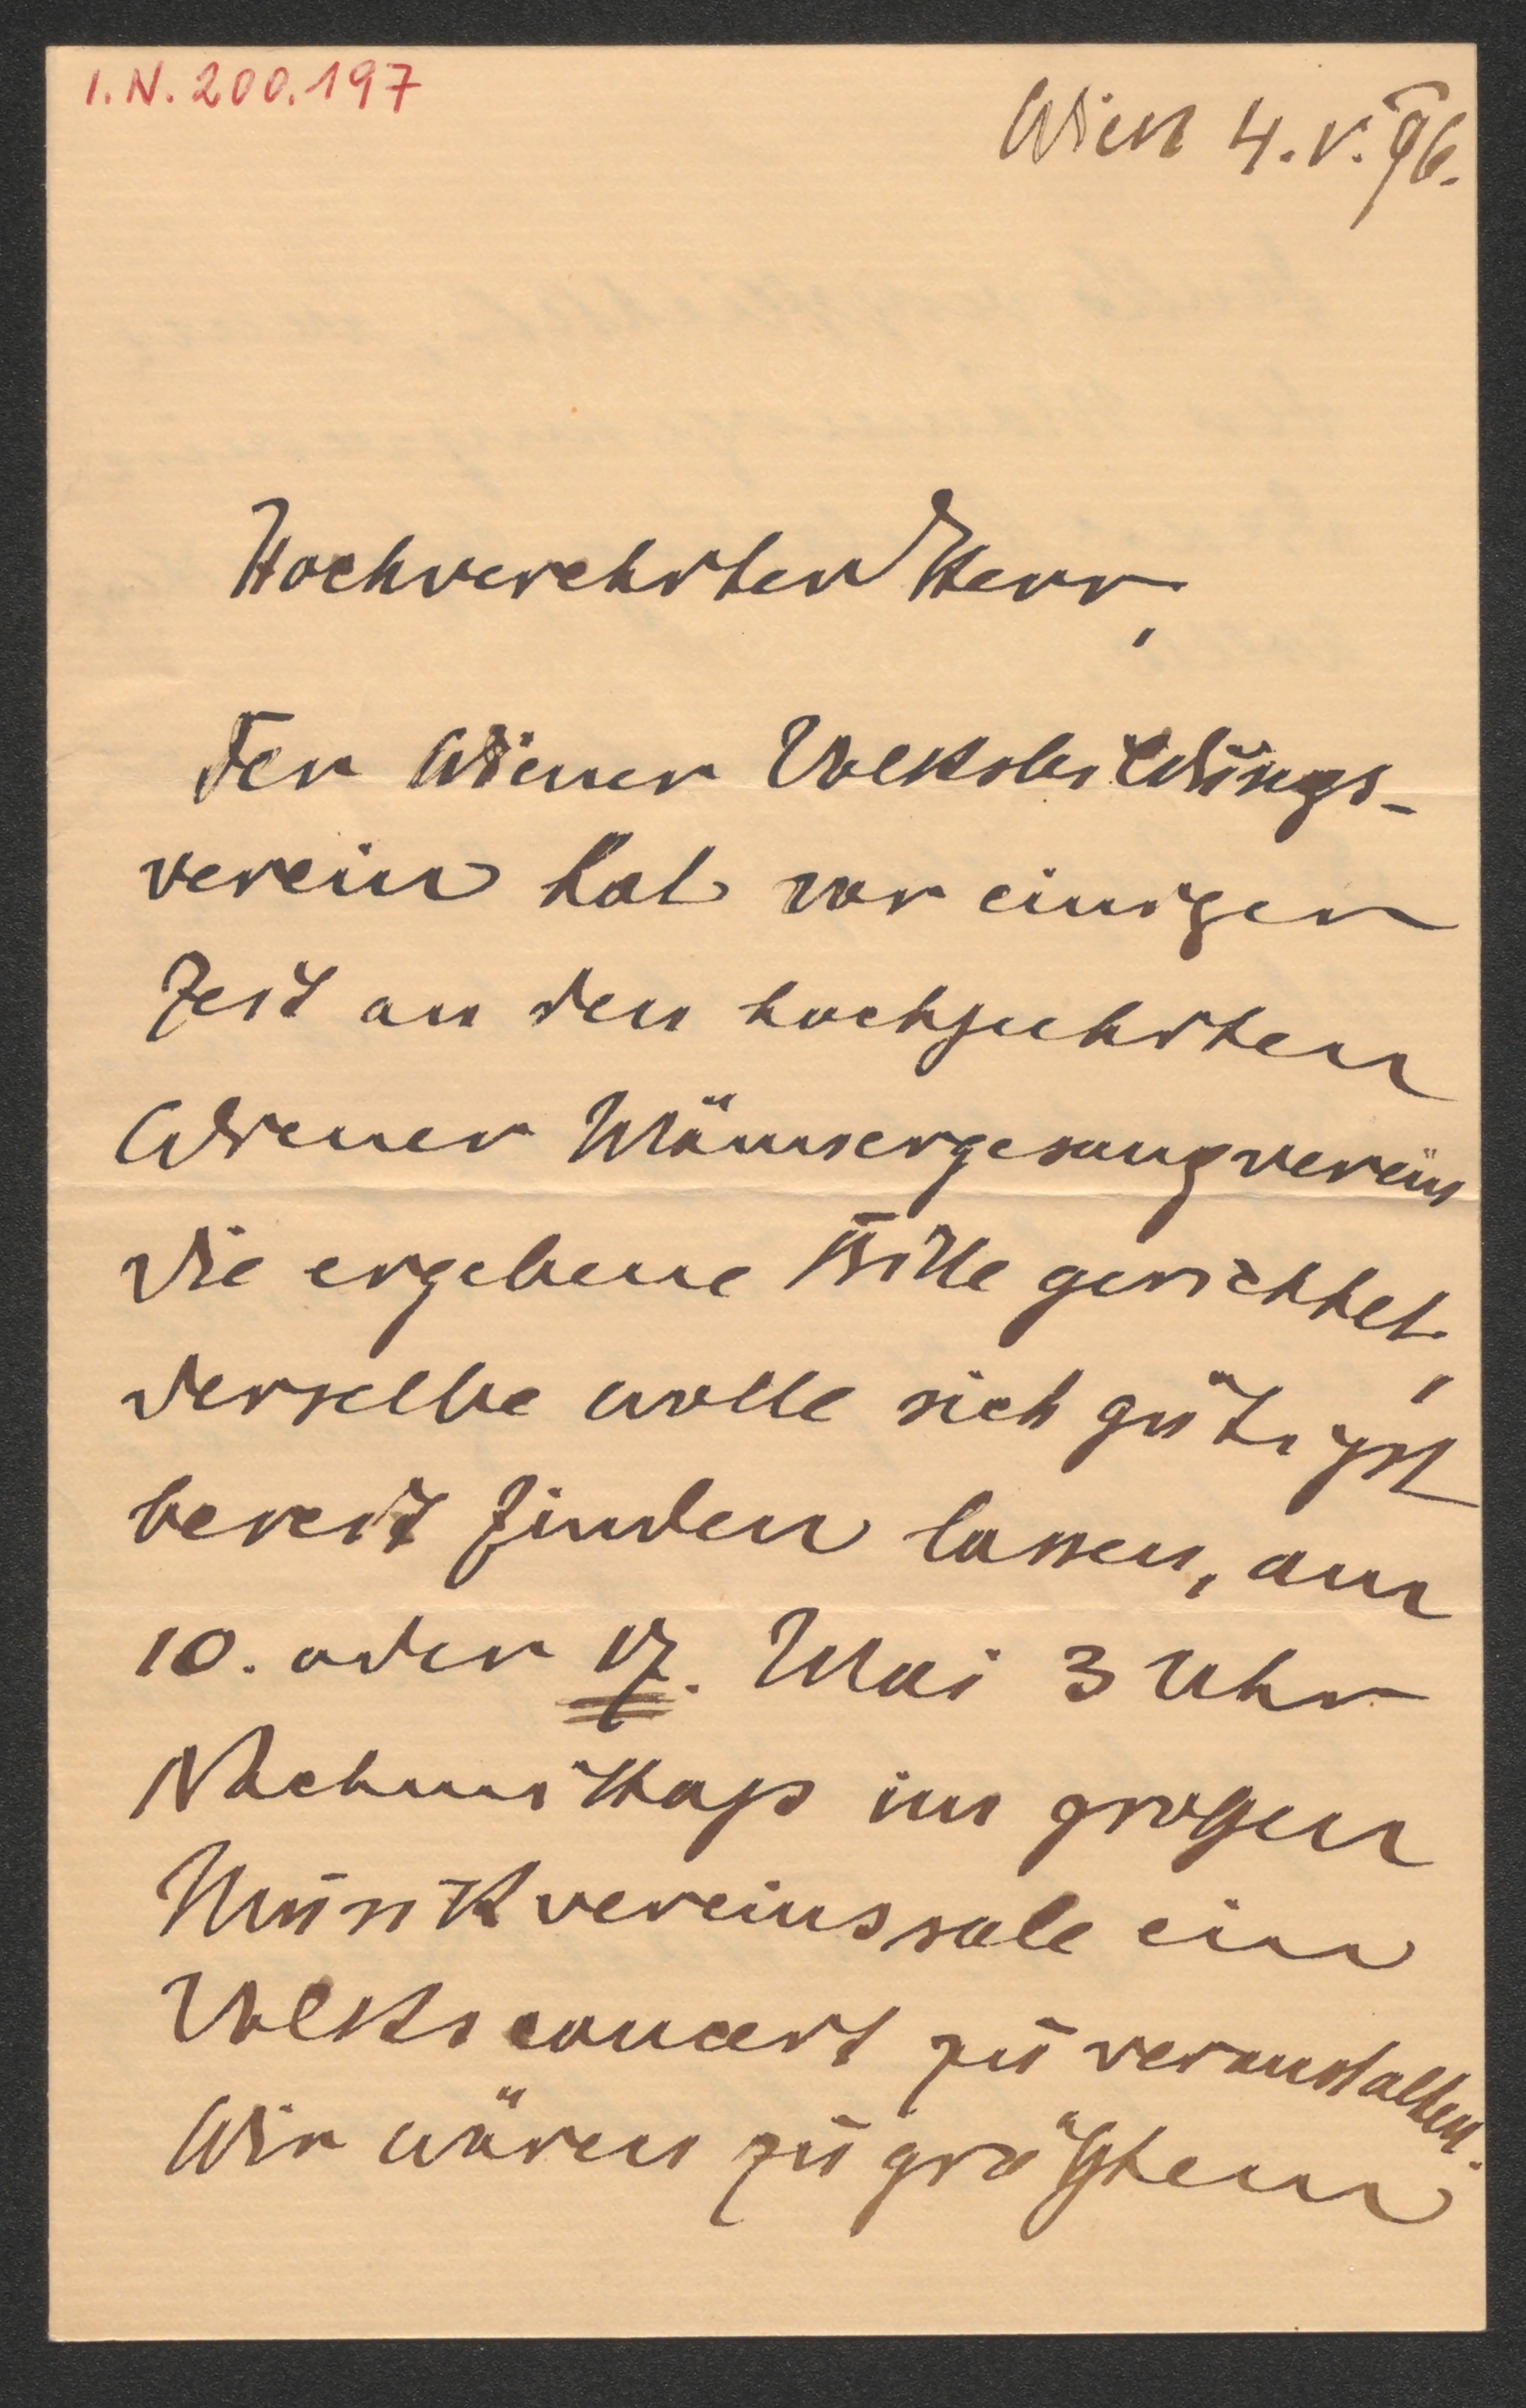 I.N. 200.197
Wien 4.V.96.
Hochverehrter Herr,
Der Wiener Volksbildungs-
verein hat vor einiger
Zeit an den hochgeehrten
Wiener Männergesangverein
die ergebene Bitte gerichtet,
derselbe wolle sich gütigst
bereit finden lassen, am
10. oder 17. Mai 3 Uhr
Nachmittags im großen
Musikvereinssale ein
Volksconcert zu veranstalten.
Wir wären zu größtem